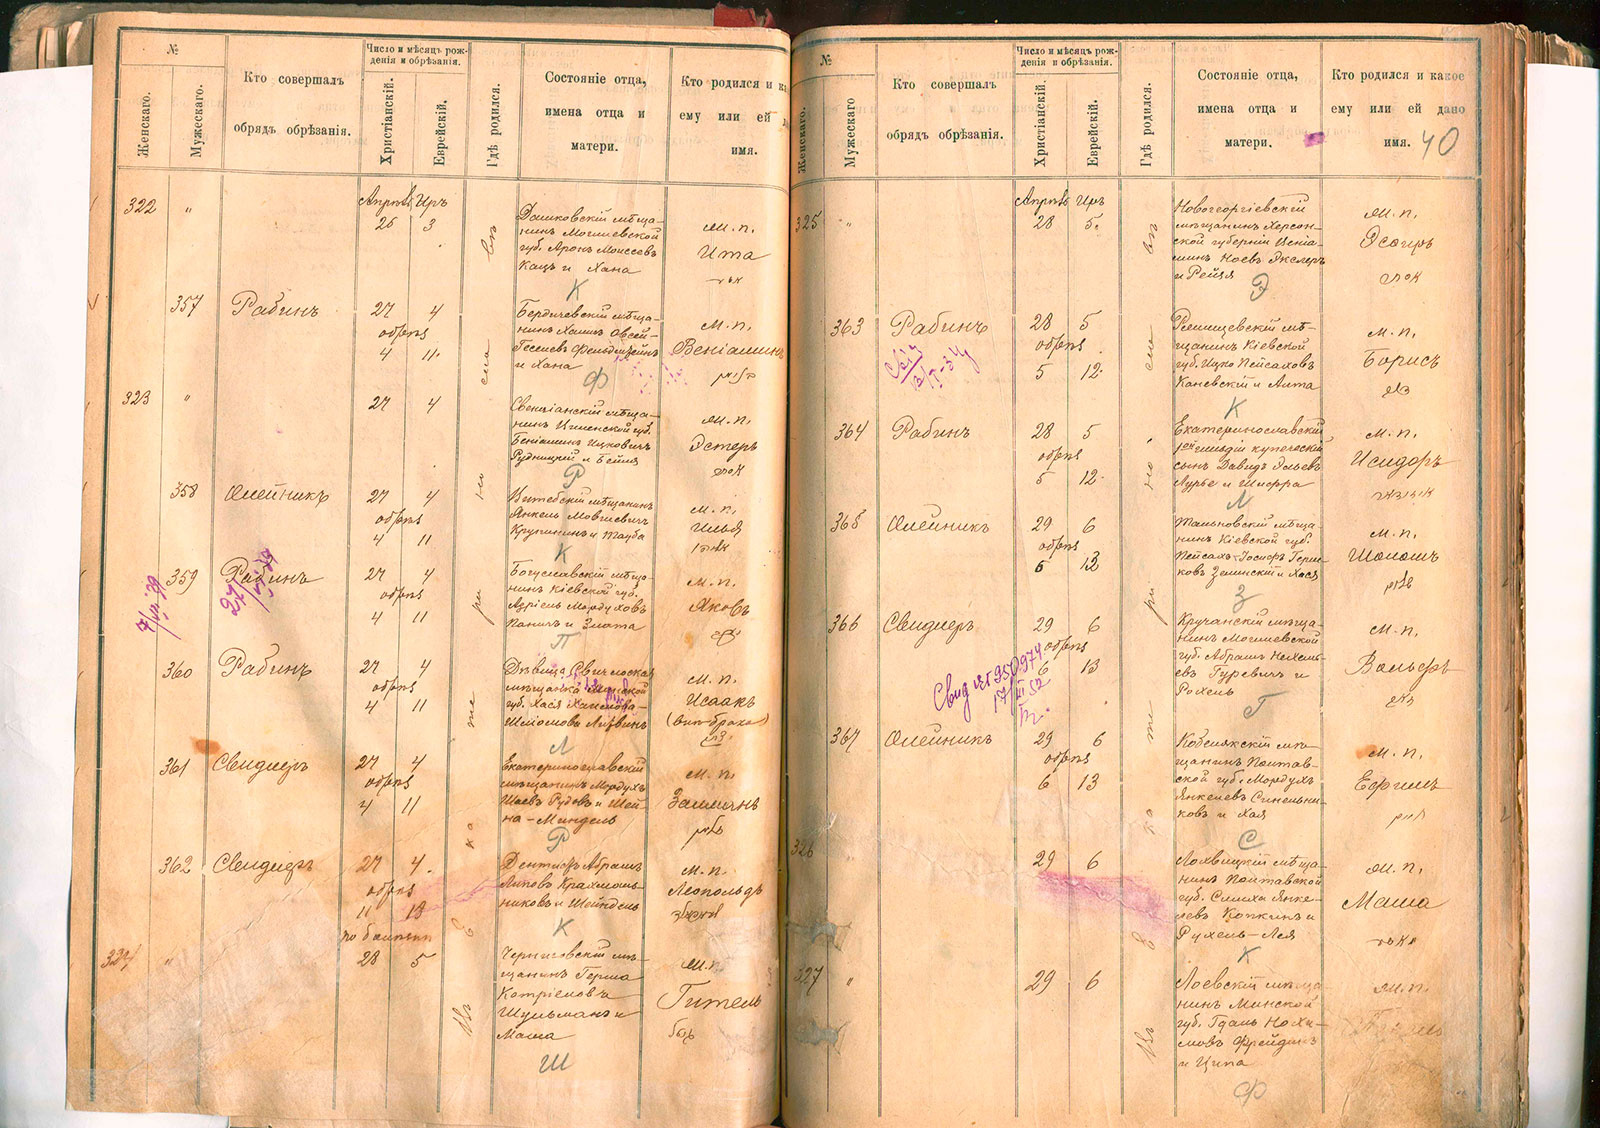 №
Женскаго.
Мужескаго.
Кто совершалъ
обрядъ обрѣзанія.
Число и мѣсяцъ рож-
денія и обрѣзанія.
Христіанскій.
Еврейскій.
Гдѣ родился.
Состояніе отца,
имена отца и
матери.
Кто родился и ка
ему или ей
имя.
322
"
Апрѣль Иръ
26 3
Дашковскій мѣща-
нинъ Могилевской
губ. Аронъ Моисеевъ
Кацъ и Хана
К
м. п.
Ита
357
Рабинъ
27 4
обрѣз
4 11.
Бердичевскій мѣща-
нинъ Хаимъ Овсей-
и Хана
Ф
м. п.
Веніаминъ
323
"
27 4
Свенцянскій мѣща-
нинъ Виленской губ.
Беніаминъ Ицковичъ
Рудницкій и Бейля
Р
м. п.
Эстеръ
358
Олейникъ
27 4
обрѣз
4 11
Витебскій мѣщанинъ
Янкель Мовшевичъ
и Тауба
К
м. п.
Илья
359
Рабинъ
27 4
обрѣз
4 11
Богуславскій мѣща-
нинъ Кіевской губ.
Азріель Мордуховъ
Паничъ и Злата
П
м. п.
Яковъ
360
Рабинъ
27 4
обрѣз
4 11
Дѣвица
мѣщанка
губ. Хася
Л
м. п.
Исаакъ
361
Свидлеръ
27 4
обрѣз
4 11
Екатеринославскій
мѣщанинъ Мордухъ
Шаевъ Рудовъ и Шей-
на-Миндель
Р
м. п.
Залманъ
362
Свидлеръ
27 4.
обрѣз
11 18
по болѣзни
Дентистъ Абрамъ
Крахмаль-
никовъ и Шейндель
К
м. п.
Леопольдъ
324
"
28 5
Черниговскій мѣ-
щанинъ Герша
Котріеловъ
Шульманъ и
Маша
Ш
м. п.
Гитель
Въ Е ка те ри но сла вѣ
№
Женскаго.
Мужескаго
Кто совершалъ
обрядъ обрѣзанія.
Число и мѣсяцъ рож-
денія и обрѣзанія.
Христіанскій.
Еврейскій.
Гдѣ родился.
Состояніе отца,
имена отца и
матери.
Кто родился и какое
ему или ей дано
имя.
40
325
"
Апрѣль Иръ
28 5.
Новогеоргіевскій
мѣщанинъ Херсон-
ской губерніи Веніа-
минъ Ноевъ Экслеръ
и Рейзя
Э
м. п.
Эсѳирь
363
Рабинъ
28 5
обрѣз
5 12.
мѣ-
щанинъ Кіевской
губ. Ицко Пейсаховъ
Каневскій и Алта
К
м. п.
Борисъ
364
Рабинъ
28 5
обрѣз
5 12.
Екатеринославскій
гильдіи купеческій
сынъ Давидъ Эльевъ
Лурье и Шифра
Л
м. п.
Исидоръ
365
Олейникъ
29 6
обрѣз
6 13
Тальновскій мѣща-
нинъ Кіевской губ.
Пейсахъ-Іосифъ Герш-
ковъ Зелинскій и Хася
З
м. п.
Шоломъ
366
Свидлеръ
29 6
обрѣз
6 13
Кручанскій мѣща-
нинъ Могилевской
губ. Абрамъ Нохель-
евъ Гуревичъ и
Рохель
Г
м. п.
Вольфъ
367
Олейникъ
29 6
обрѣз
6 13
Кобелякскій мѣ-
щанинъ Полтав-
ской губ. Мордухъ
Янкелевъ Синельни-
ковъ и Хая
С
м. п.
Ефимъ
326
29 6
Лохвицкій мѣща-
нинъ Полтавской
губ. Симха Янке-
левъ Копкинъ и
Рухель-Лея
К
м. п.
Маша
327
"
29 6
Лоевскій мѣща-
нинъ Минской
губ. Гдаль Нохи-
мовъ Фрейдинъ
и Ципа
Ф
м. п.
Въ Е ка те ри но сла вѣ